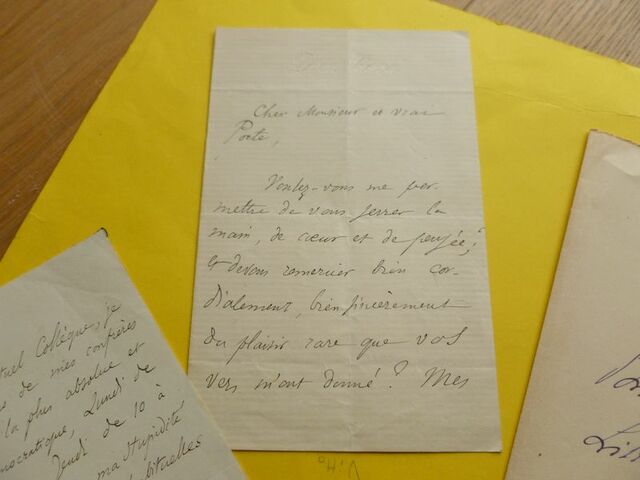 Cher Monsieur et vrai
Poète,
Voulez-vous me per-
mettre de vous serrer la
main, de cœur et de pensée,
& de vous remercier bien cor-
dialement, bien sincèrement
du plaisir rare que vos
vers m'ont donné? Mes
Collègue, je
de mes confrères
la plus absolue et
Lundi de
Jeudi de 10 à
ma stupidité